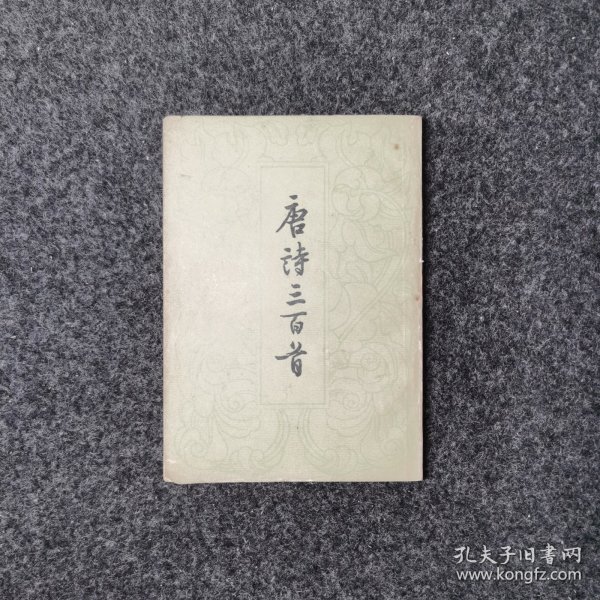 唐詩三百首
孔夫子旧書网
www.kongfz.com